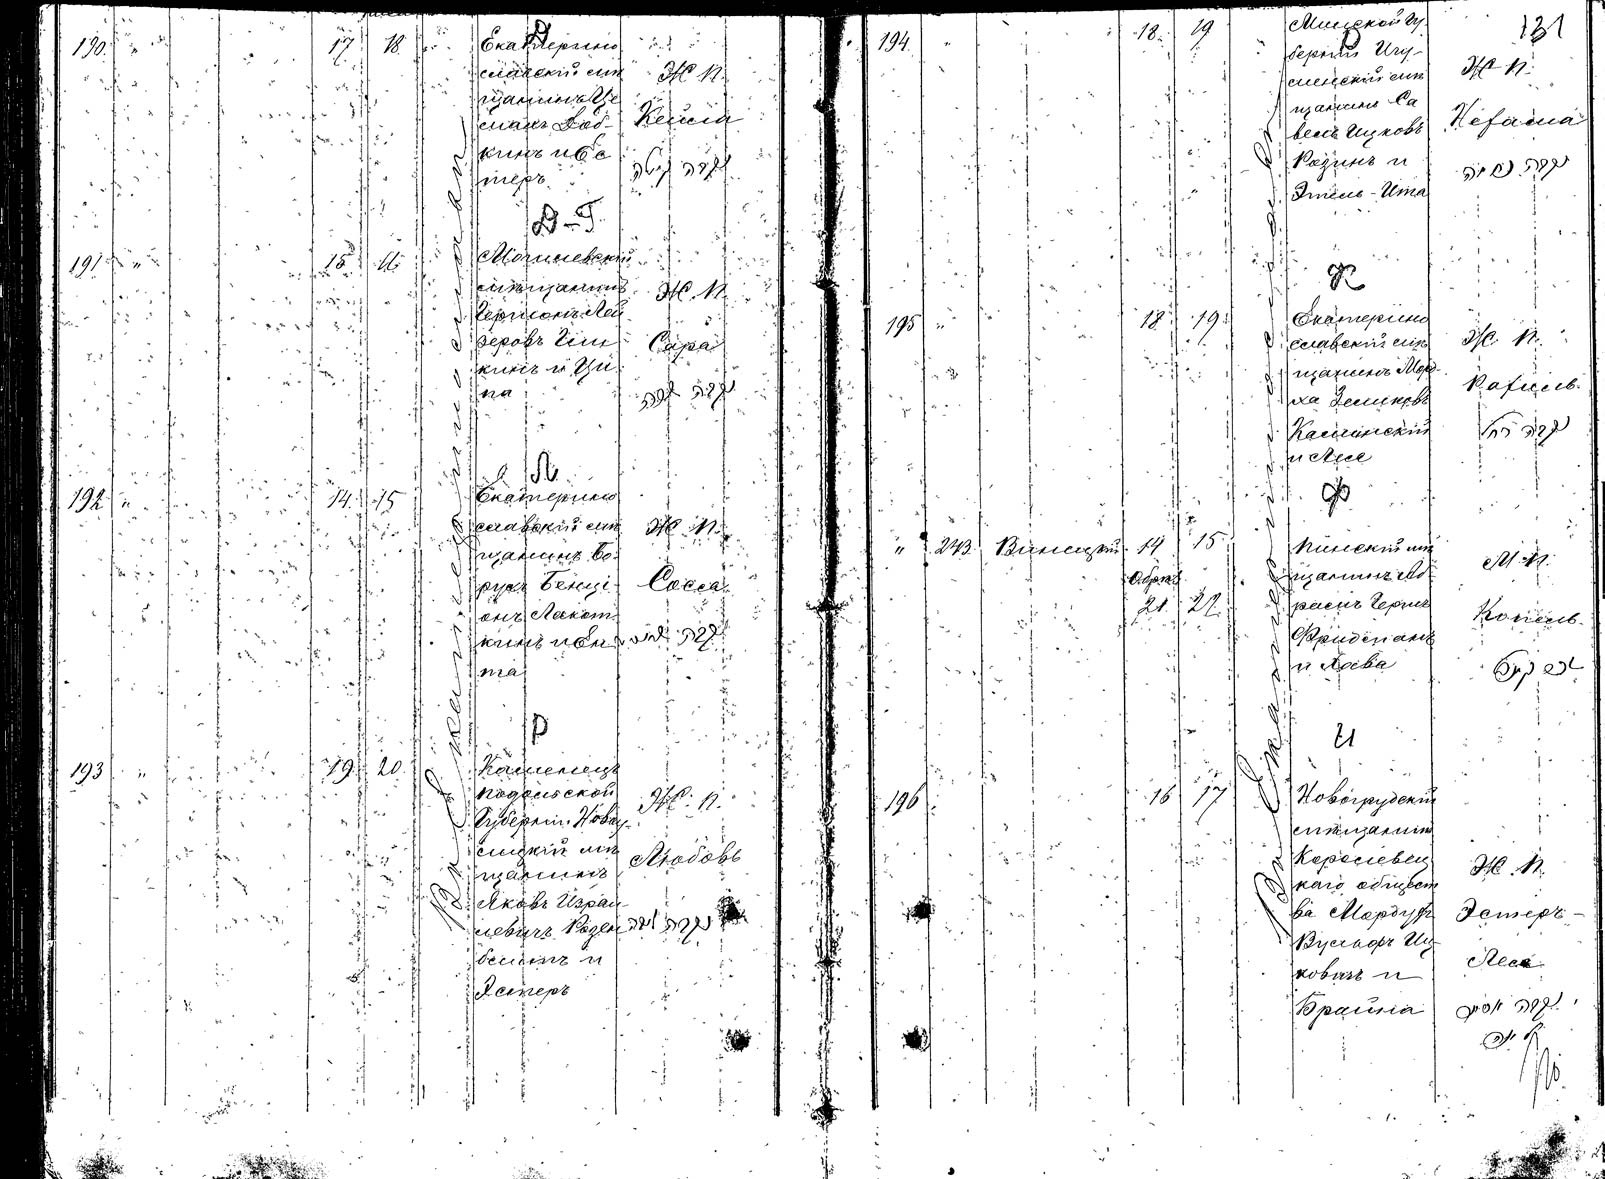 190 " 17 18
Д
Екатерино
славскій мѣ
щанинъ Це
махъ Доб-
кинъ и Эс
теръ
Ж. П.
Кейла
נקבה קיילה
Д-Г.
191 " 15 16
Могилевскій
мѣщанинъ
Гершонъ Лей
зеровъ Гин
кинъ и Ци
па
Ж. П.
Сара
נקבה שרה
Л
192 " 14 15
Екатерино
славскій мѣ
щанинъ Бо-
рухъ Бенці-
онъ Лакот
кинъ и Ен
та
Ж. П.
Сосса
נקבה
Р
193 " 19 20
Каменецъ
Подольской
Губерніи Ново
мѣ
щанинъ
Яковъ Изран
левичъ Розен
и
Эстеръ
Ж. П.
Любовь
נקבה
Въ Екатеринославѣ
131
194 " 18 19
Минской Гу
берніи Игу-
менскій мѣ
щанинъ Са
велъ Ицковъ
Розинъ и
Этель-Ита
Ж. П.
Нехама
נקבה נחמה
К
195 " 18 19
Екатерино
славскій мѣ
щанинъ Морд-
ха Зеликовъ
Каминскій
и Лея
Ж. П.
Рахиль
נקבה רחל
Ф
" 243 Винецкій 14 15
Обрѣз
21 22
Пинскій мѣ
щанинъ Аб-
рамъ Гершъ
Фридманъ
и Хава
М. П.
Копель
זכר קאפל
И
196 16 17
Новогрудскій
мѣщанинъ
Королевец
каго общест
ва Мордухъ
Вульфъ Иц-
ковичъ и
Брайна
Ж. П.
Эстеръ-
Лея
נקבה אסתר
לאה
Въ Екатеринославѣ